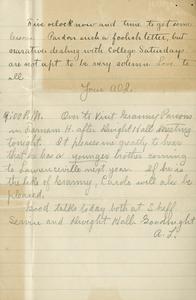 Five oclock now and time to get some
lessons. Pardon such a foolish letter, but
narratives dealing with College Saturdays
are not apt to be very solemn. Love to
all
Your A.L.
9:00 P.M. Over to visit Granny Parsons
in Farnam H. after Dwight Hall meeting
tonight. It pleases me greatly to hear
that he has a younger brother coming
to Lawrenceville next year. If he is
the like of Granny, will also be
pleased.
Good talks today both at Sheff.
Service and Dwight Hall. Goodnight
A.L.